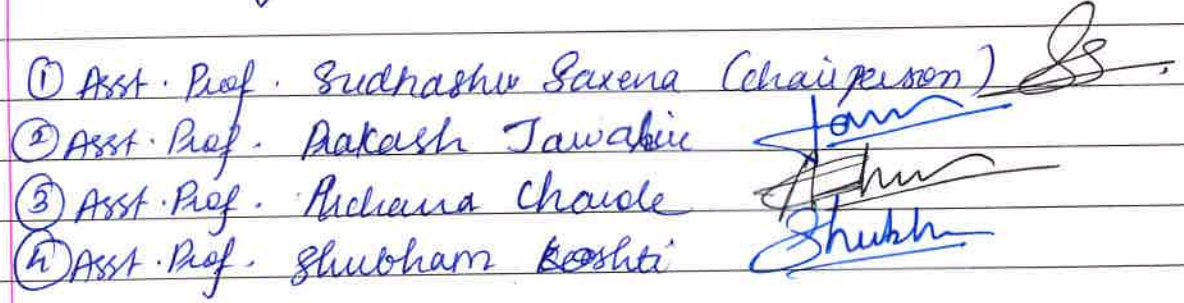 ① Asst. Prof. Sudhashu Saxena (Chairperson)
② Asst. Prof. Prakash
③ Asst. Prof. Archana
④ Asst. Prof. Shubham Koshti